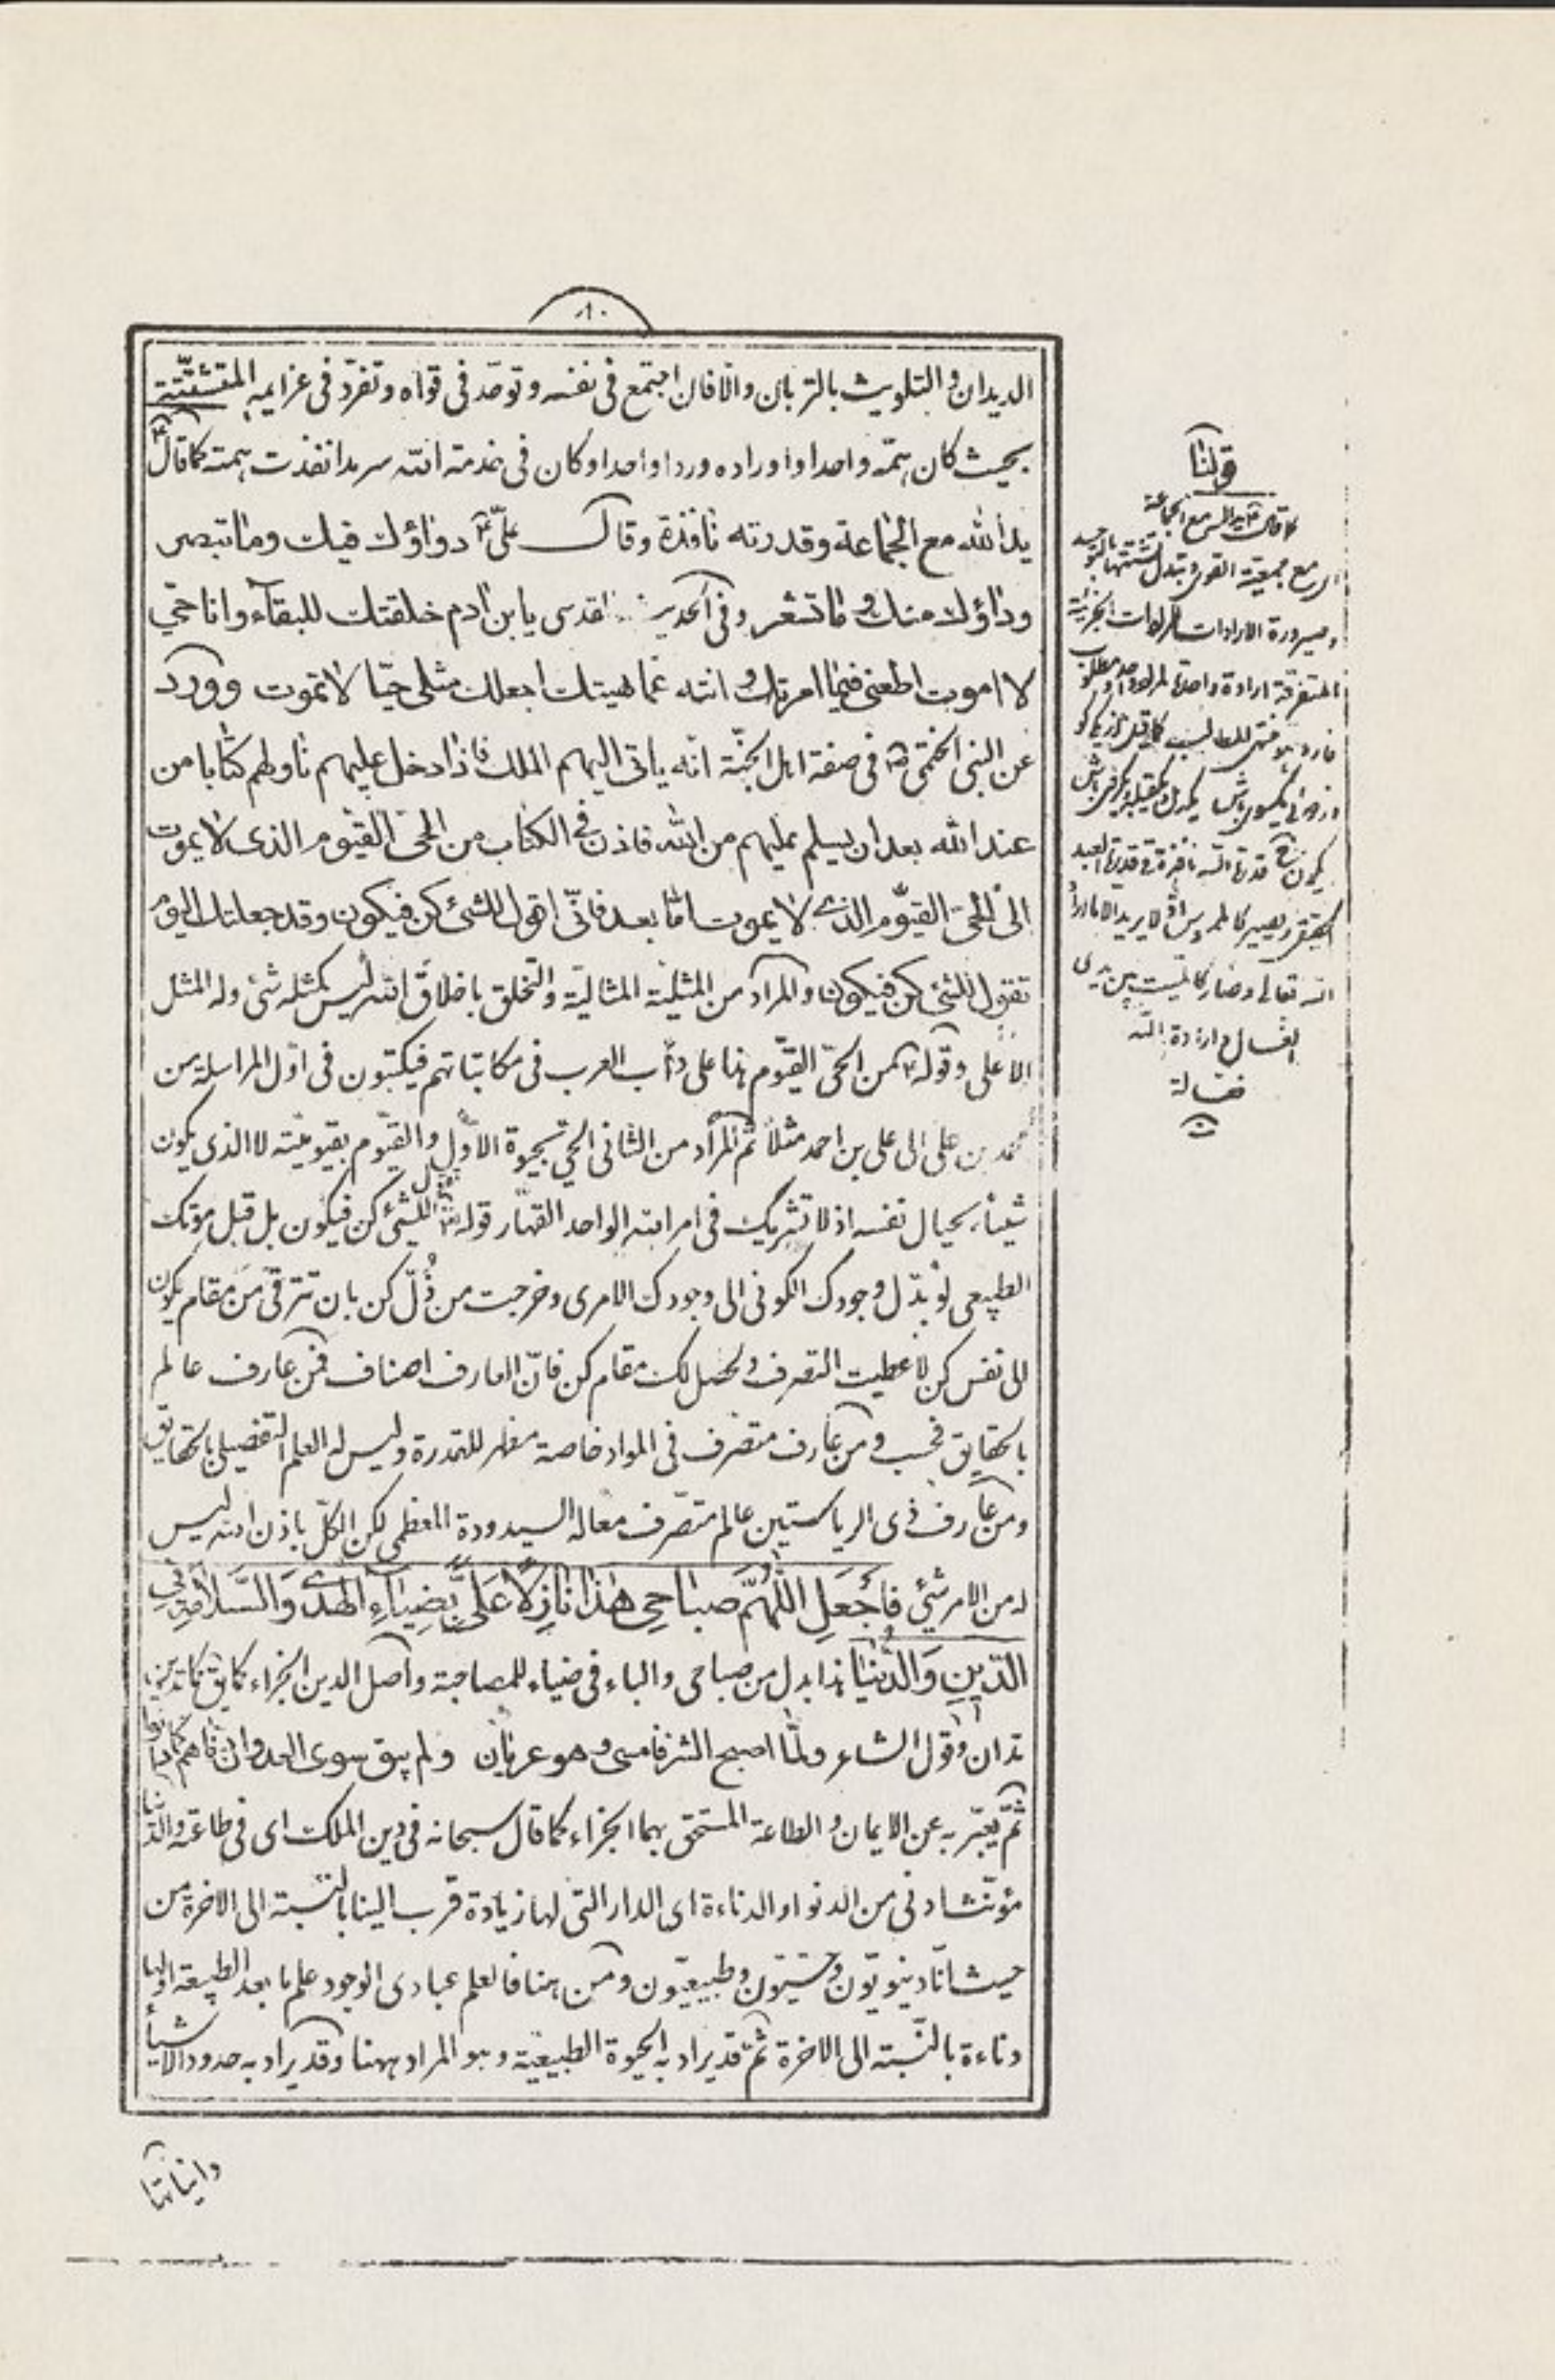 ٨٠
الديدان والتلويث بالتربان والاقان اجتمع فى نفسه وتوحّد فى قواه وتفرّد فى عزايمه المتشتّتة
بحيث كان همّه واحدا واوراده وردا واحدا وكان فى خدمة الله سرمدا نفذت همته كما قال ع
يد الله مع الجماعة وقدرته نافذة وقال علىّ ع دواؤك فيك وما تبصر
وداؤك منك وما تشعر وفى الحديث القدسى يابن ادم خلقتك للبقاء وانا حىّ
لا اموت اطعنى فيما امرتك وانته عما نهيتك اجعلك مثلى حيّا لا تموت وورد
عن النبى الختمى ص فى صفة اهل الجنّة انّه ياتى اليهم الملك فاذا دخل عليهم ناولهم كتابا من
عند الله بعد ان يسلم عليهم من الله فاذن فى الكتاب من الحىّ القيّوم الذى لا يموت
الى الحىّ القيّوم الذى لا يموت امّا بعد فانّى اقول للشئ كن فيكون وقد جعلتك اليوم
تقول للشئ كن فيكون والمراد من المثليّة المثاليّة والتخلق باخلاق الله ليس كمثله شئ وله المثل
الاعلى وقوله ع من الحىّ القيّوم هذا على دأب العرب فى مكاتباتهم فيكتبون فى اوّل المراسلة من
محمد بن على الى على بن احمد مثلا ثمّ المراد من الثانى الحىّ بحيوة الاوّل والقيّوم بقيوميّته لا الذى يكون
شيئا بحيال نفسه اذ لا تشريك فى امر الله الواحد القهّار قوله تقول للشئ كن فيكون بل قبل موتك
الطبيعى لو بدّل وجودك الكونى الى وجودك الامرى وخرجت من ذُلّ كن بان تترقّى من مقام يكون
الى نفس كن لاعطيت التصرف ولحصل لك مقام كن فانّ العارف اصناف فمن عارف عالم
بالحقايق فحسب ومن عارف متصرف فى المواد خاصة مظهر للقدرة وليس له العلم التفصيلى بالحقايق
ومن عارف ذى الرياستين عالم متصّرف معا له السيدودة العظمى لكن الكلّ باذن الله ليس
له من الامر شئ فَاجْعَلِ اللّٰهُمَّ صَباحى هٰذا نازِلًا عَلَىَّ بِضِياءِ الهُدىٰ وَالسَّلامَةِ فى
الدّينِ وَالدُّنْيا هذا بدل من صباحى والباء فى ضياء للمصاحبة واصل الدين الجزاء كما يق كما تدين
تدان وقول الشاعر ولمّا اصبح الشر فامسى وهو عريان ولم يبق سوى العدوان دنّاهم كما دانوا
ثمّ يعبّر به عن الايمان والطاعة المستحق بهما الجزاء كما قال سبحانه فى دين الملك اى فى طاعته والدنيا
مؤنّث ادنى من الدنو او الدناءة اى الدار التى لها زيادة قرب الينا بالنسبة الى الاخرة من
حيث انّا دنيويّون وحسّيّون وطبيعيّون ومن هنا فالعلم بمبادى الوجود علم ما بعد الطبيعة او لها
دناءة بالنّسبة الى الاخرة ثمّ قد يراد به الحيوة الطبيعيّة وهو المراد ههنا وقد يراد به حدود الاشياء
وانياتها
قولنا
كما قال ع يد الله مع الجماعة
اى مع جمعية القوى وتبدل تشتتها بالتوحيد
وصيرورة الارادات الجزئية
المتفرقة ارادة واحدة
يكون ح قدرة الله نافذة فى قدرة العبد
لا يريد الا ما اراد
الله تعالى وصار كالميت بين يدى
الغسال وارادة الله
فعالة